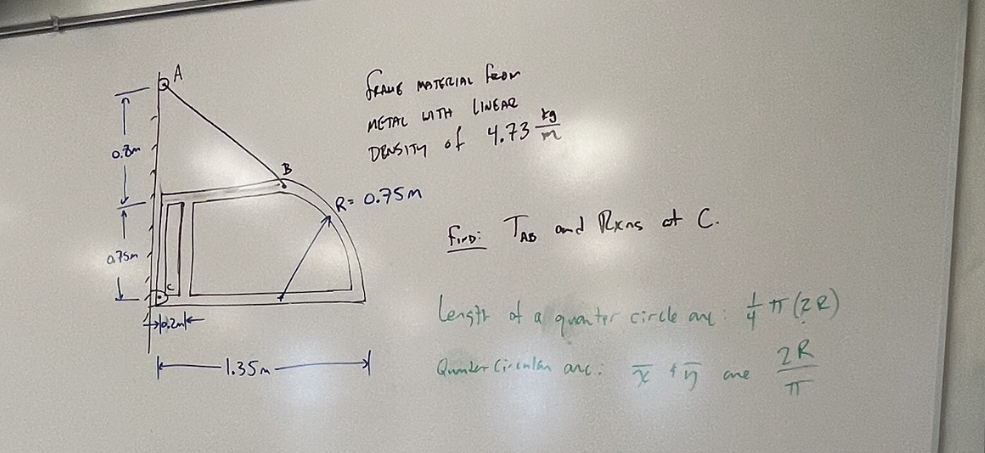 A
FRAME MATERIAL FROM
METAL WITH LINEAR
DENSITY OF 4.73 kg/m
0.8m
B
R= 0.75m
FIND: T_AB and Rxns at C.
0.75m
C
0.2m
Length of a quarter circle arc: 1/4 π (2R)
1.35m
Quarter Circular arc: x̄ & ȳ are 2R/π